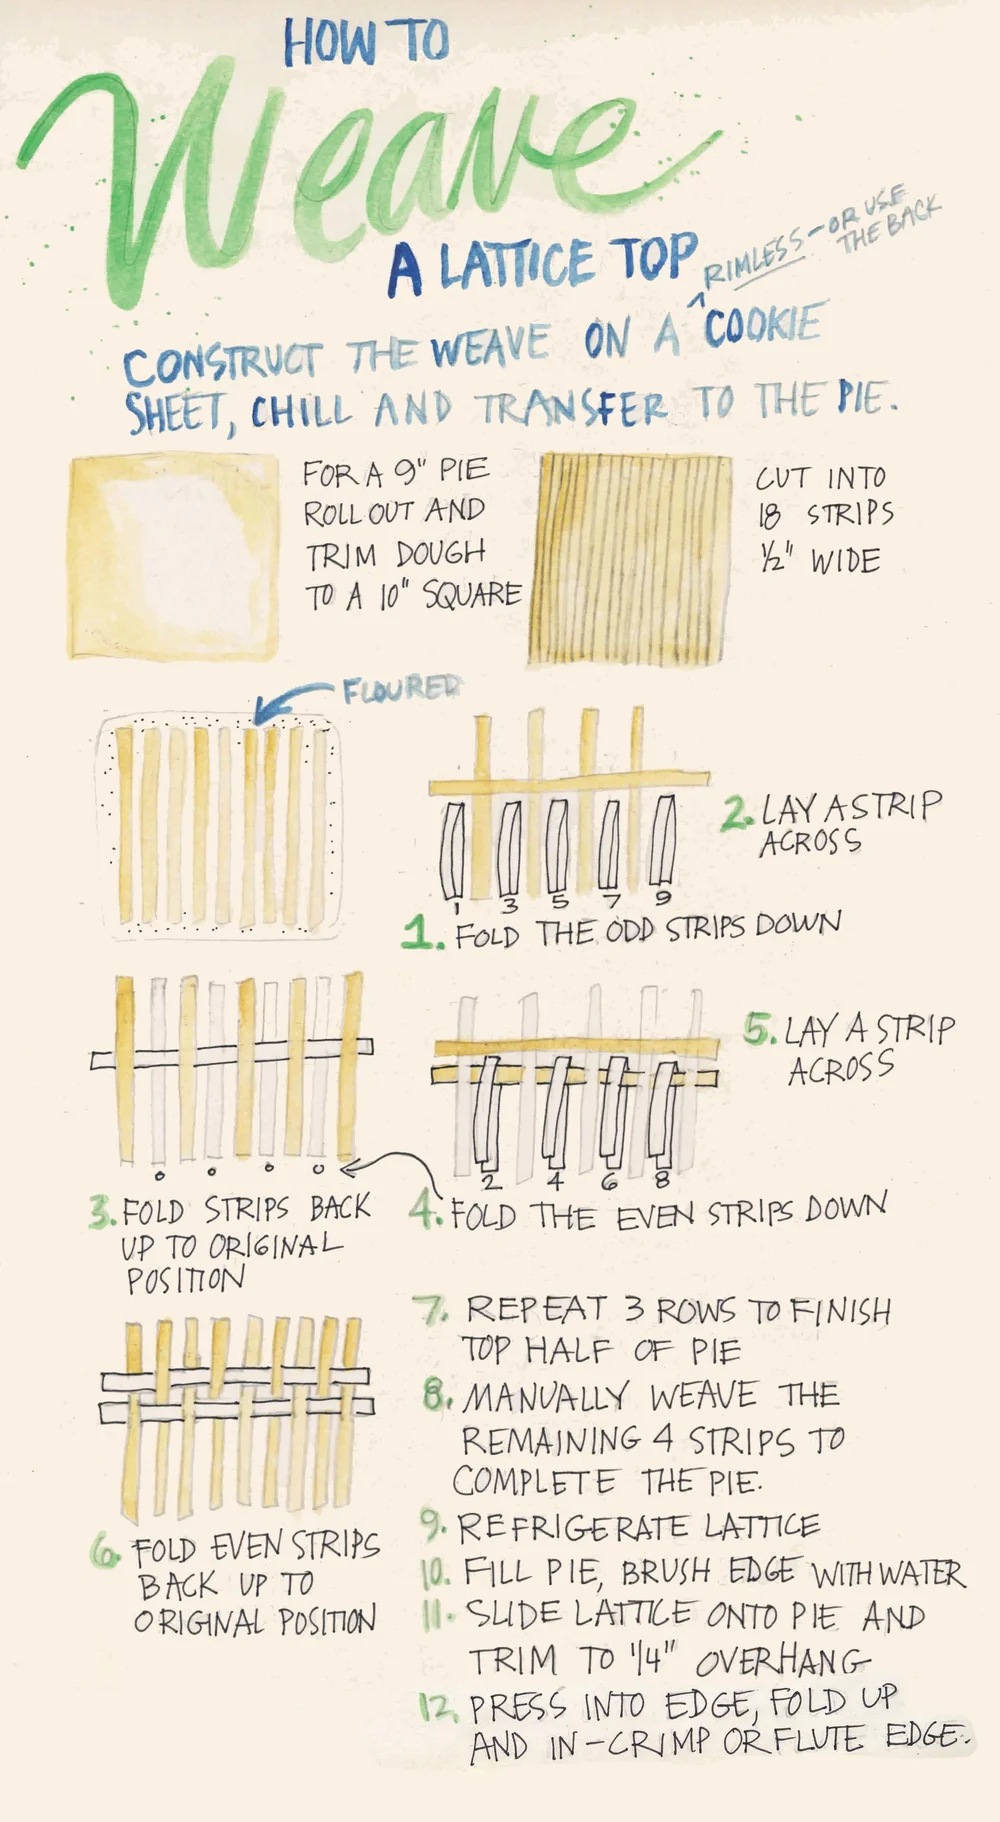 HOW TO
Weave
A LATTICE TOP
RIMLESS - OR USE
THE BACK
CONSTRUCT THE WEAVE ON A ^ COOKIE
SHEET, CHILL AND TRANSFER TO THE PIE.
FOR A 9" PIE
ROLL OUT AND
TRIM DOUGH
TO A 10" SQUARE
CUT INTO
18 STRIPS
1/2" WIDE
FLOURED
1 3 5 7 9
1. FOLD THE ODD STRIPS DOWN
2. LAY A STRIP
ACROSS
3. FOLD STRIPS BACK
UP TO ORIGINAL
POSITION
2 4 6 8
4. FOLD THE EVEN STRIPS DOWN
5. LAY A STRIP
ACROSS
6. FOLD EVEN STRIPS
BACK UP TO
ORIGINAL POSITION
7. REPEAT 3 ROWS TO FINISH
TOP HALF OF PIE
8. MANUALLY WEAVE THE
REMAINING 4 STRIPS TO
COMPLETE THE PIE.
9. REFRIGERATE LATTICE
10. FILL PIE, BRUSH EDGE WITH WATER
11. SLIDE LATTICE ONTO PIE AND
TRIM TO 1/4" OVERHANG
12. PRESS INTO EDGE, FOLD UP
AND IN - CRIMP OR FLUTE EDGE.